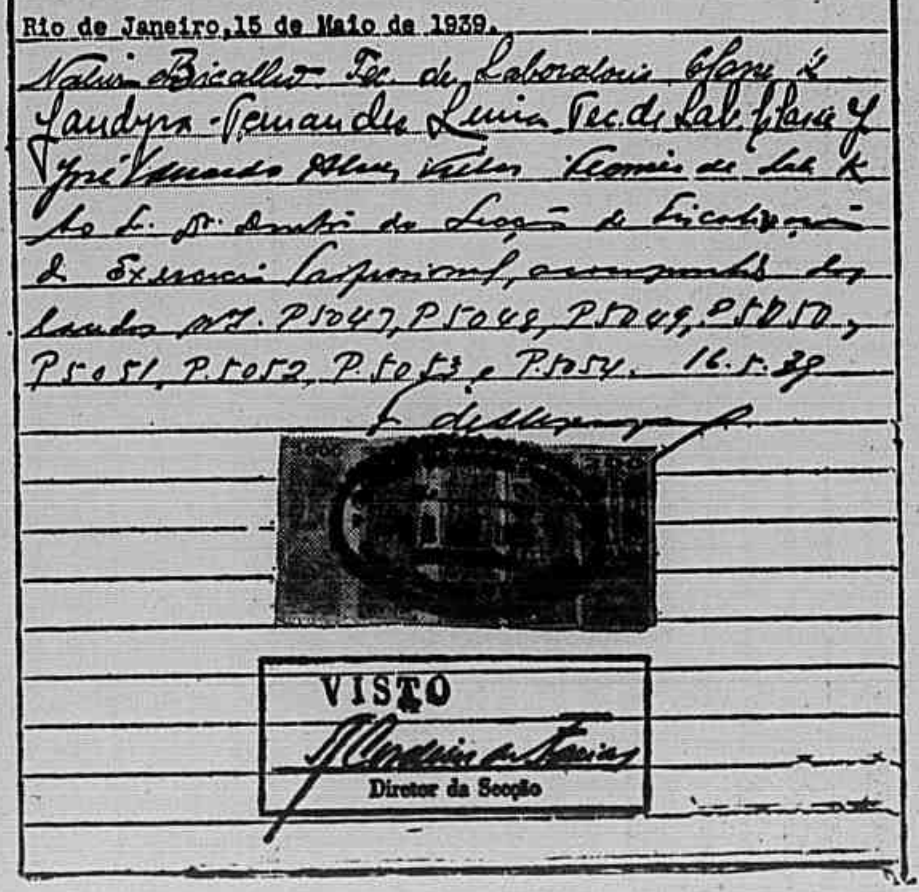 Rio de Janeiro,15 de Maio de 1939.
Bicalho Tec. de Laboratorio Classe K
Jandyra Fernandes Lima Tec. de Lab. Classe J
José Eduardo Alves Filho Tecnico de Lab K
Ao Sr. Dr. Diretor da Secção de Fiscalização
do Exercicio Profissional, acompanhado dos
laudos nos. P5047, P5048, P5049, P5050,
P5051, P.5052, P.5053 e P.5054. 16.5.39
VISTO
Cordeiro de Farias
Diretor da Secção